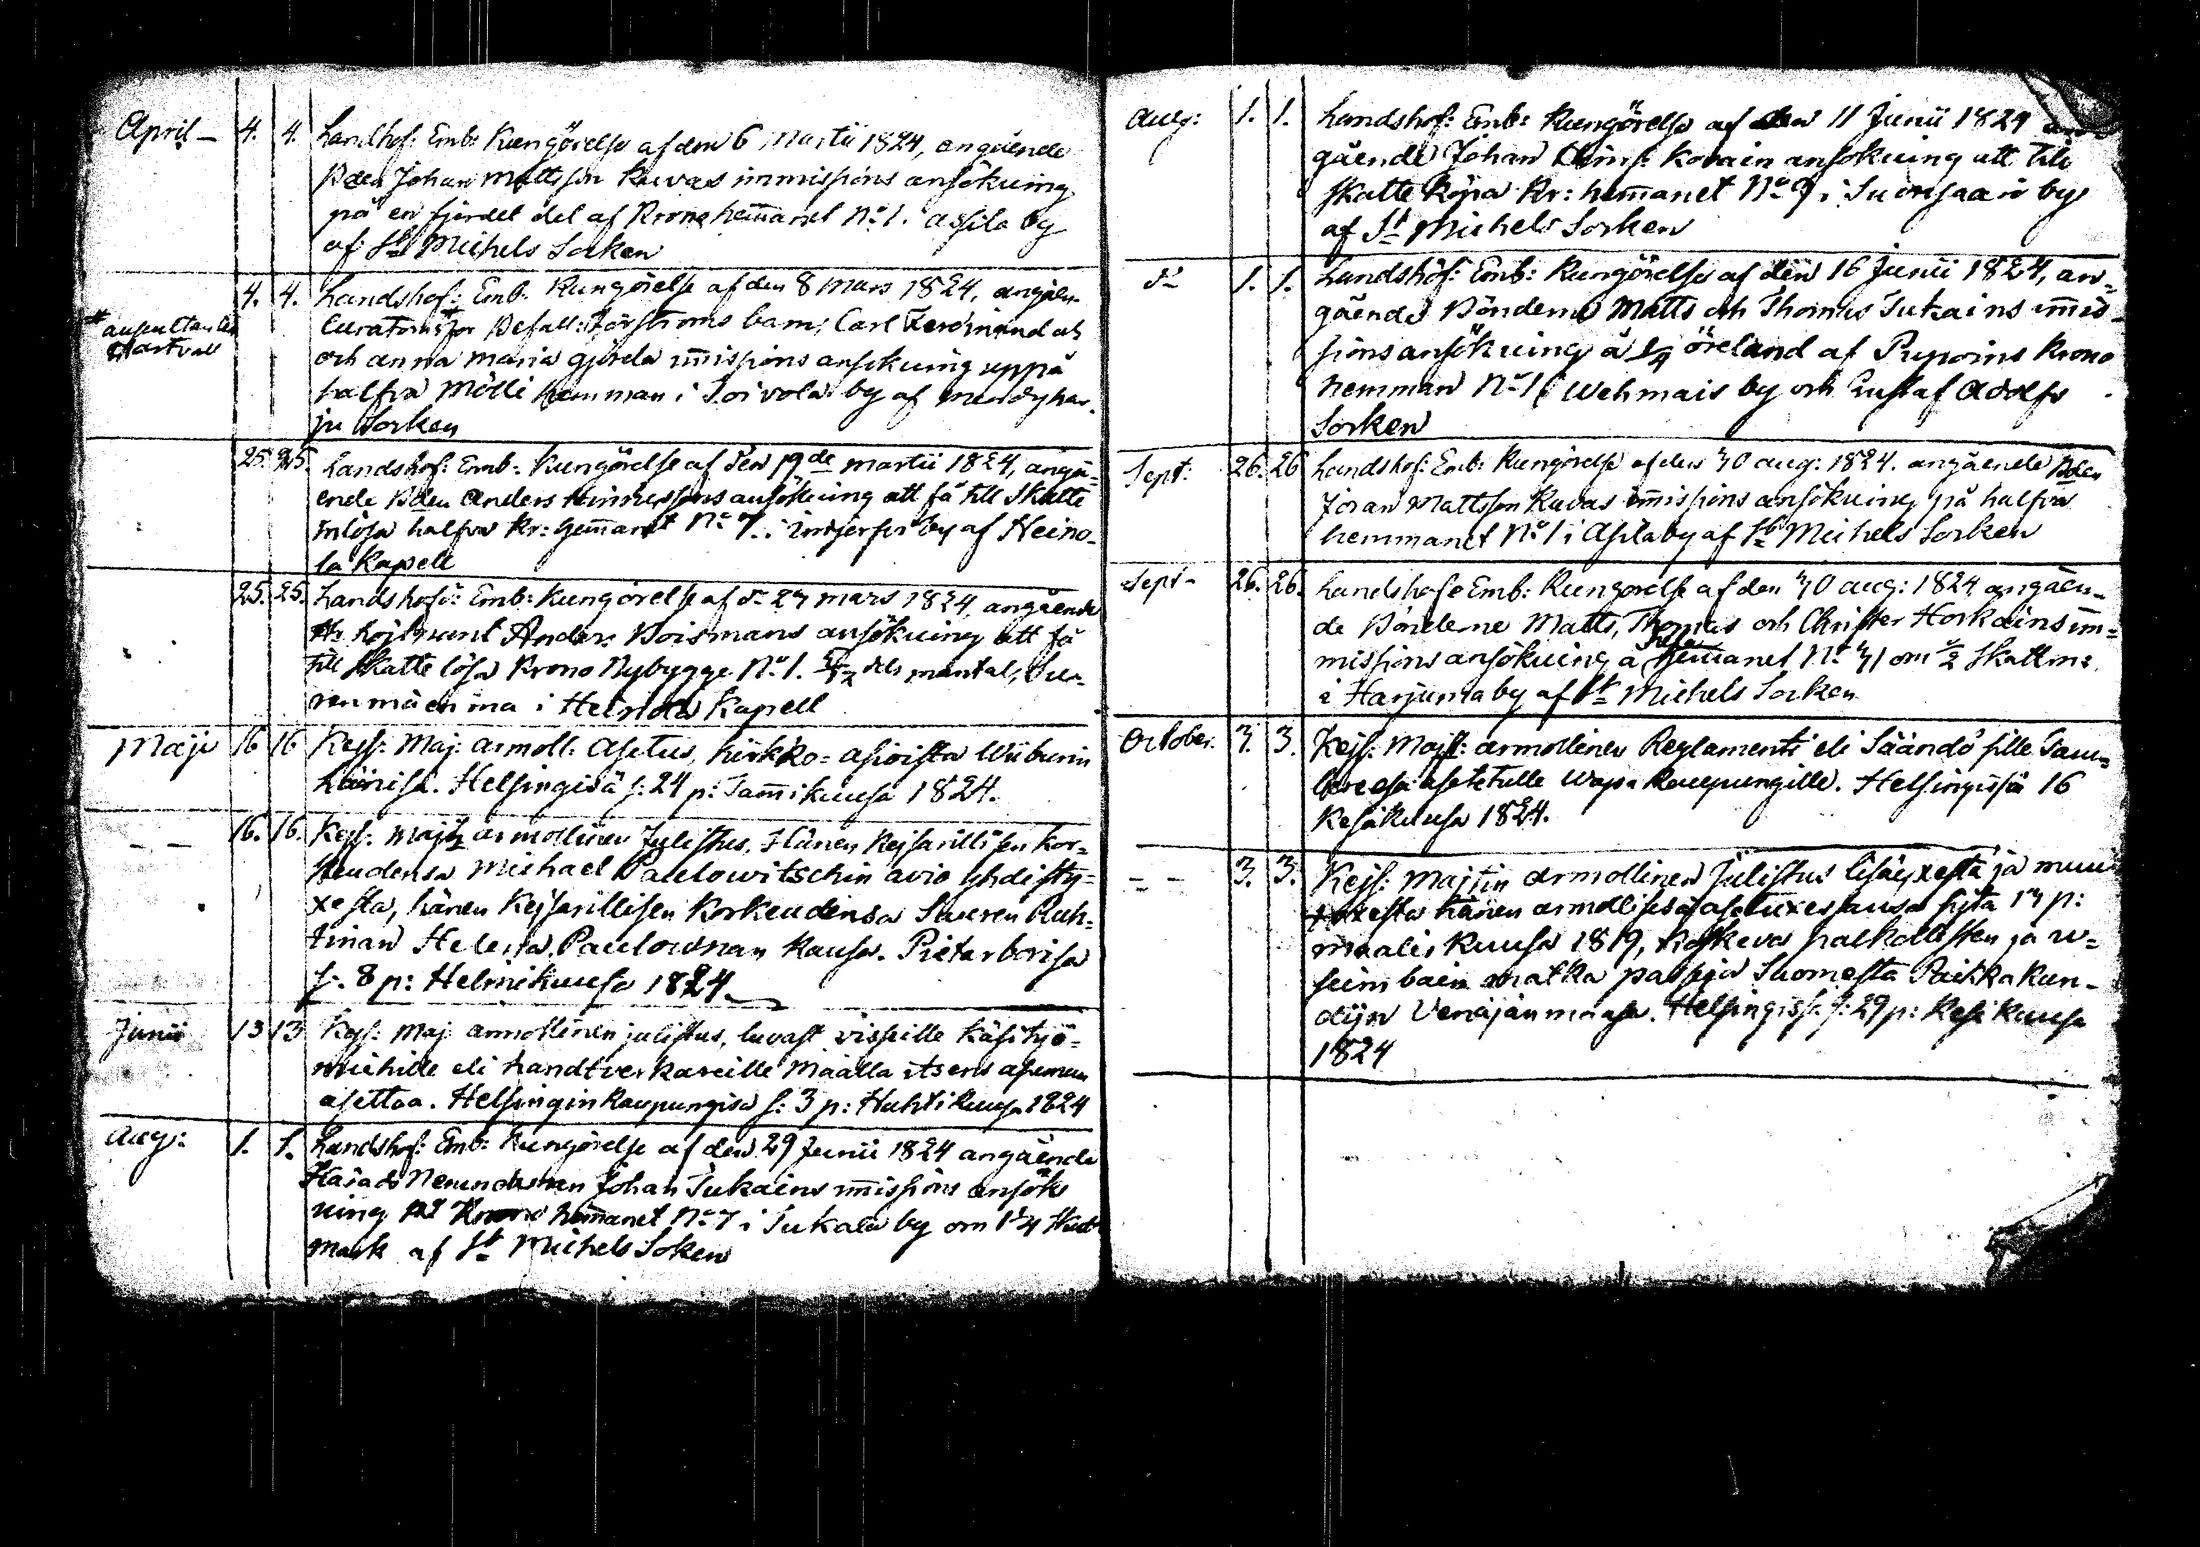 April – 4. 4. Landshof: Emb: Kungörelse af den 6 Martii 1824, angående
Bden Johan Mattsson Kuvas immissions ansökning
på en fjerdel del af Krono hemanet No 1. i Assila by
af St Michels Socken
4. 4. Landshof: Emb: Kungörelse af den 8 Mars 1824, angåen-
* auscultanten Hartvall
Curatorns * för Befall: Törströms barn, Carl Ferdinand
och Anna Maria gjorda immissions ansökning uppå
halfva Mölli hemman i Toivola by af Mendyhar-
ju Socken
25. 25. Landshof: Emb: Kungörelse af den 19de Martii 1824, angå-
ende Bden Anders ansökning att få till Skatte
inlösa halfva Kr: hemanet No 7. i by af Heino-
la Kapell
25. 25. Landshof: Emb: Kungörelse af d: 27 Mars 1824, angående
Anders Boismans ansökning att få
till Skatte lösa Krono Nybygge No 1. dels mantal,
i Heinola Kapell
Maji 16 16 Kejs: Maj: armoll: Asetus, kirkko-asioista Wiiburin
Läänisä. Helsingisä s: 24 p: Tammikuusa 1824.
– – 16. 16. Kejs: Maj:tz armollinen Julistus, Hänen Kejsarillisen Kor-
keudensa Michael Paulowitschin avio yhdisty-
xestä, hänen Kejsarillisen Korkeudensa Suuren Ruh-
tinan Helena Paulownan kansa. Pietarborisa
s. 8 p: Helmikuusa 1824.
Junii 13 13 Kejs: Maj: armollinen julistus, luvast visseille Käsityö-
miehille eli handtverkareille Maalla itsens asumaan
asettaa. Helsingin kaupungisa s: 3 p: Huhtikuusa 1824
Aug: 1. 1. Landshof: Emb: Kungörelse af den 29 Junii 1824 angående
Härads Nemndeman Johan Tukains immissions ansök-
ning på Krono hemanet No 7 i Tukala by om 1 1/4 Skatt
mark af St Michels Soken
Aug: 1. 1. Landshof: Emb: Kungörelse af den 11 Junii 1824 an-
gående Johan ansökning att till
Skatte köpa Kr: hemanet No i Suonsaari by
af St Michels Socken
d: 1. 1. Landshöf: Emb: Kungörelse af den 16 Junii 1824, an-
gående Bönderne Matts och Thomas Tukains immis-
sions ansökning å 1/4 öresland af Pepoins Krono
Hemman No 1 i Wehmais by och Gustaf Adolfs
Socken
Sept: 26. 26 Landshof: Emb: Kungörelse af den 30 Aug: 1824. angående Bden
Johan Mattsson Kuvas immissions ansökning på halfva
hemmanet No 1 i Asila by af St Michels Socken
Sept – 26. 26. Landshofs Emb: Kungörelse af den 30 Aug: 1824 angåen-
de Bönderne Matts, Thomas och Christer Horkains im-
missions ansökning å hemanet No om 1/2 Skattm:
i Harjuma by af St Michels Socken
October. 3. 3. Kejs: Majst: armollinen Reglamenti eli Säändö sille
asetetulle Wapa Kaupungille. Helsingissä 16
Kesäkuusa 1824.
– – 3. 3. Kejs: Majtin armollinen Julistus lisäyxestä ja muu-
toxesta hänen armollisesa asetuxesansa siitä 17 p:
maalis kuusa 1819, koskeva palkollisten ja
matka passeja Suomesta Paikkakun-
dijn Venäjän maasa. Helsingisä s: 29 p: Kesä Kuusa
1824